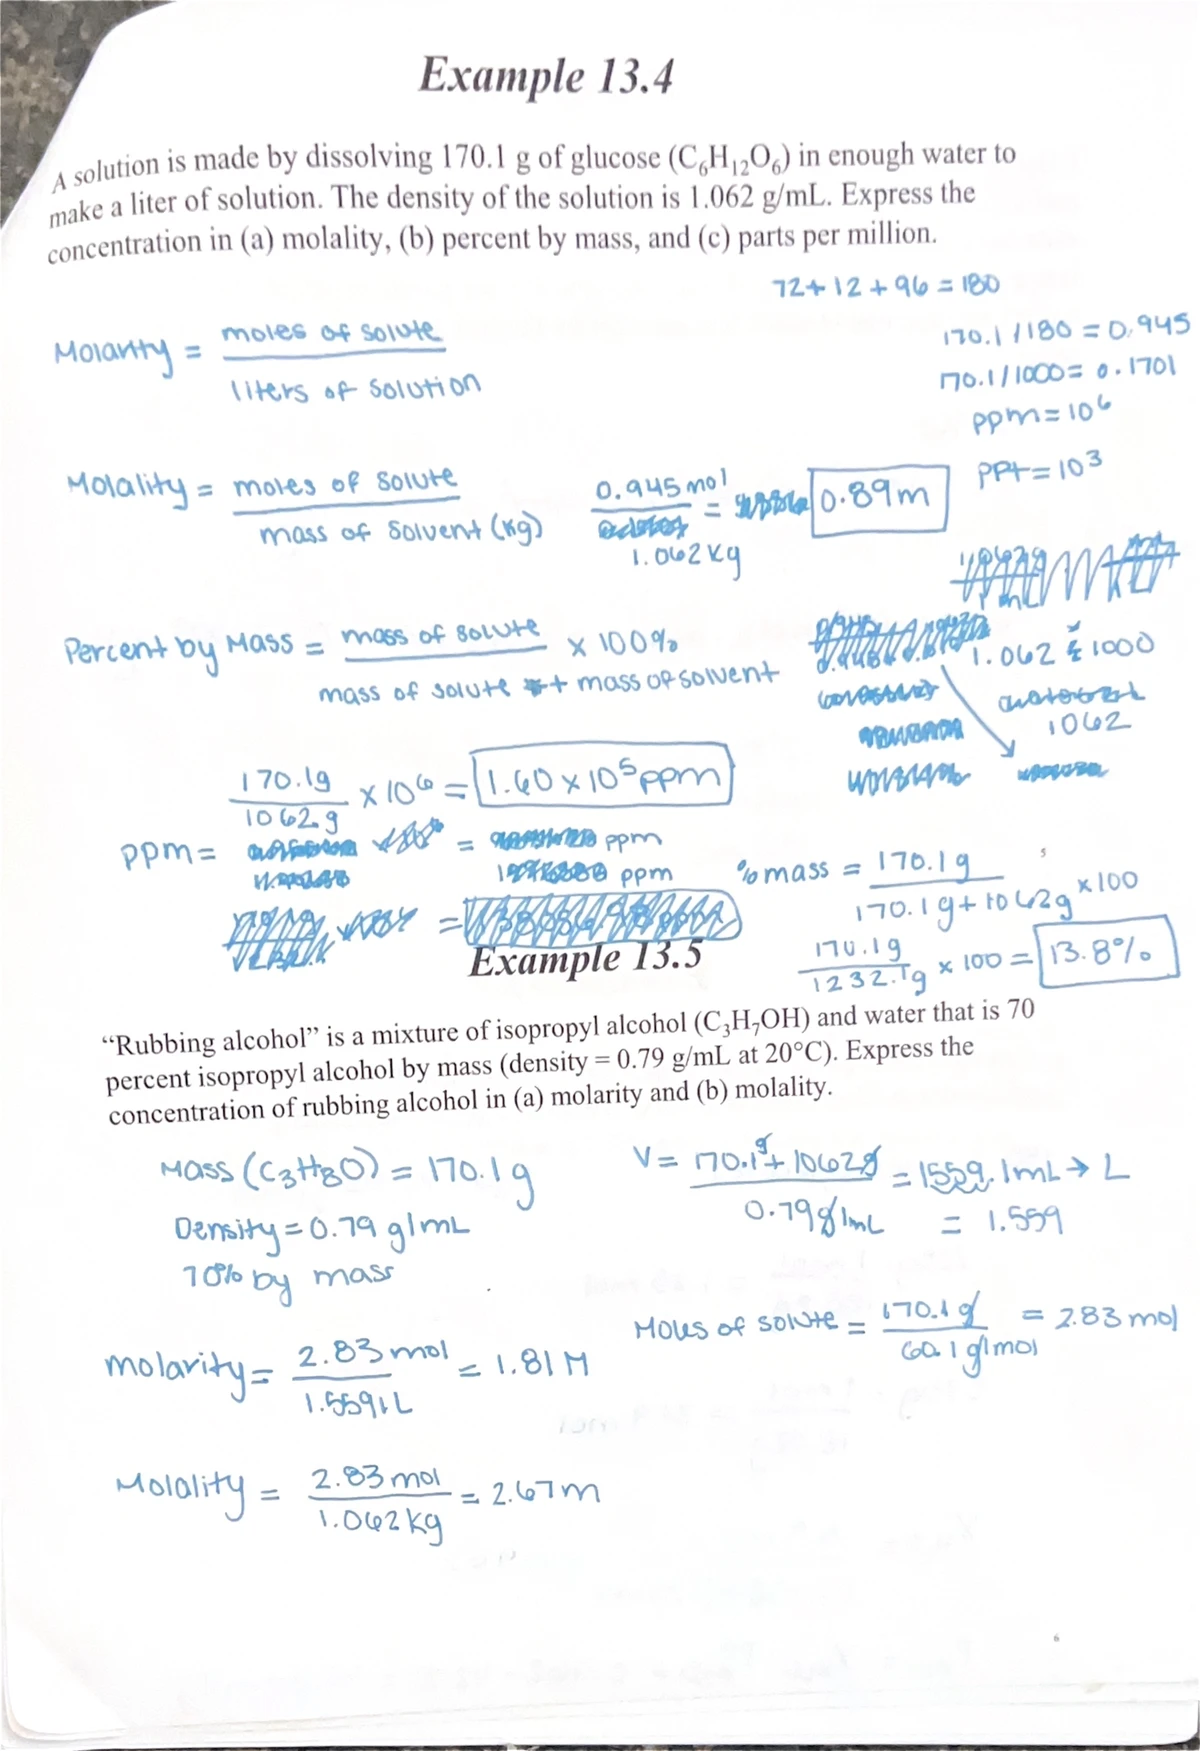 Example 13.4
A solution is made by dissolving 170.1 g of glucose (C₆H₁₂O₆) in enough water to
make a liter of solution. The density of the solution is 1.062 g/mL. Express the
concentration in (a) molality, (b) percent by mass, and (c) parts per million.
72+12+96=180
Molarity = moles of solute
liters of solution
170.1/180=0.945
170.1/1000=0.1701
ppm=10⁶
ppt=10³
Molality = moles of solute
mass of solvent (kg)
0.945 mol
1.062 kg
= 0.89m
Percent by Mass = mass of solute
mass of solute + mass of solvent
× 100%
1.062 × 1000
1062
170.1g
1062g
× 10⁶ = 1.60 × 10⁵ ppm
ppm=
= ppm
ppm
=
% mass = 170.1 g
170.1g + 1062g
×100
170.1g
1232.1g
× 100 = 13.8%
Example 13.5
“Rubbing alcohol” is a mixture of isopropyl alcohol (C₃H₇OH) and water that is 70
percent isopropyl alcohol by mass (density = 0.79 g/mL at 20°C). Express the
concentration of rubbing alcohol in (a) molarity and (b) molality.
Mass (C₃H₈O) = 170.1 g
Density = 0.79 g/mL
70% by mass
V = 170.1g + 1062g
0.79g/mL
= 1559.1mL → L
= 1.559
Moles of solute = 170.1 g
60.1 g/mol
= 2.83 mol
molarity = 2.83 mol
1.5591L
= 1.81 M
Molality = 2.83 mol
1.062 kg
= 2.67m
6